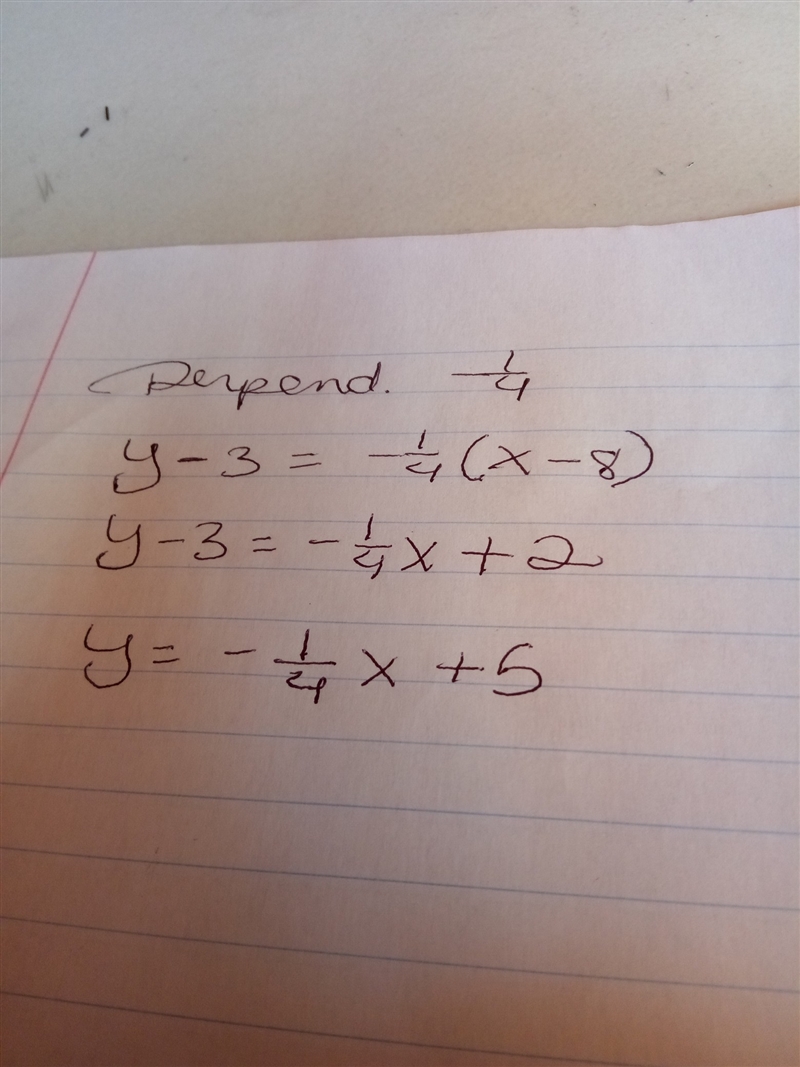 Perpend. -1/4
y - 3 = -1/4(x - 8)
y - 3 = -1/4x + 2
y = - 1/4 x + 5